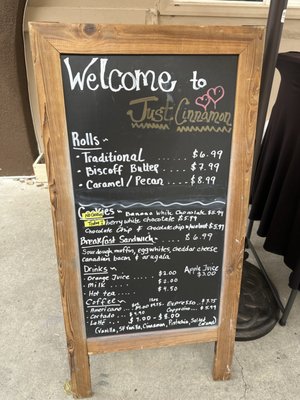 Welcome to
Just Cinnamon
Rolls
- Traditional ..... $6.99
- Biscoff Butter .... $7.99
- Caramel/Pecan .... $8.99
Cookies ~ Banana White Chocolate $5.99
berry white chocolate $5.99
Chocolate Chip & Chocolate chip walnut $5.99
Breakfast Sandwich ~ $6.99
Sourdough muffin, egg whites, cheddar cheese
Canadian bacon & arugala.
Drinks ~ Apple Juice
- Orange Juice .... $2.00 $3.00
- Milk .... $2.00
- Hot tea .... $4.50
Coffee ~
- Americano Espresso $3.75
- Cortado Cappuccino $5.00
- Latte $7.00 - $8.00
(Vanilla, SF Vanilla, Cinnamon, Pistachio, Salted Caramel)